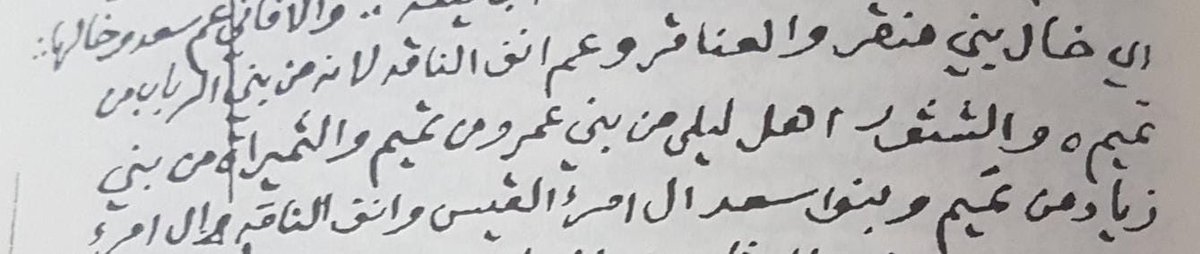 والا فاني عم سعد وخالها
اي خال بني منقر والعناقر وعم انف الناقه لانه من بني الرباب من
تميم ه والشثور اهل ليلى من بني عمرو من تميم والثميرات من بني
زياد من تميم وبنوا سعد ال امرء القيس وانف الناقه وال امرء